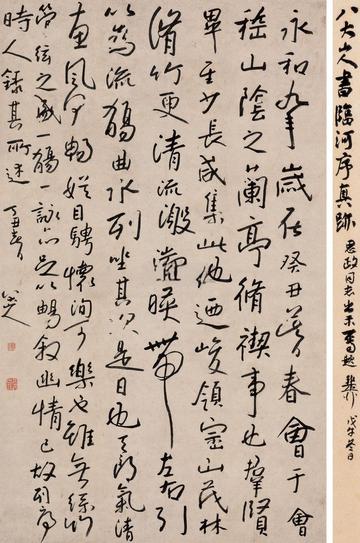 八大山人書臨河序真跡
同志出示属题 戊午冬日
永和九年歲在癸丑暮春會于會
稽山陰之蘭亭脩禊事也羣賢
畢至少長咸集此地迺峻領崇山茂林
脩竹更清流激湍暎帶左右引
以為流觴曲水列坐其次是日也天朗氣清
惠風和暢娱目騁懷洵可樂也雖無絲竹
管弦之盛一觴一詠亦足以暢叙幽情已故列序
時人錄其所述
八大山人